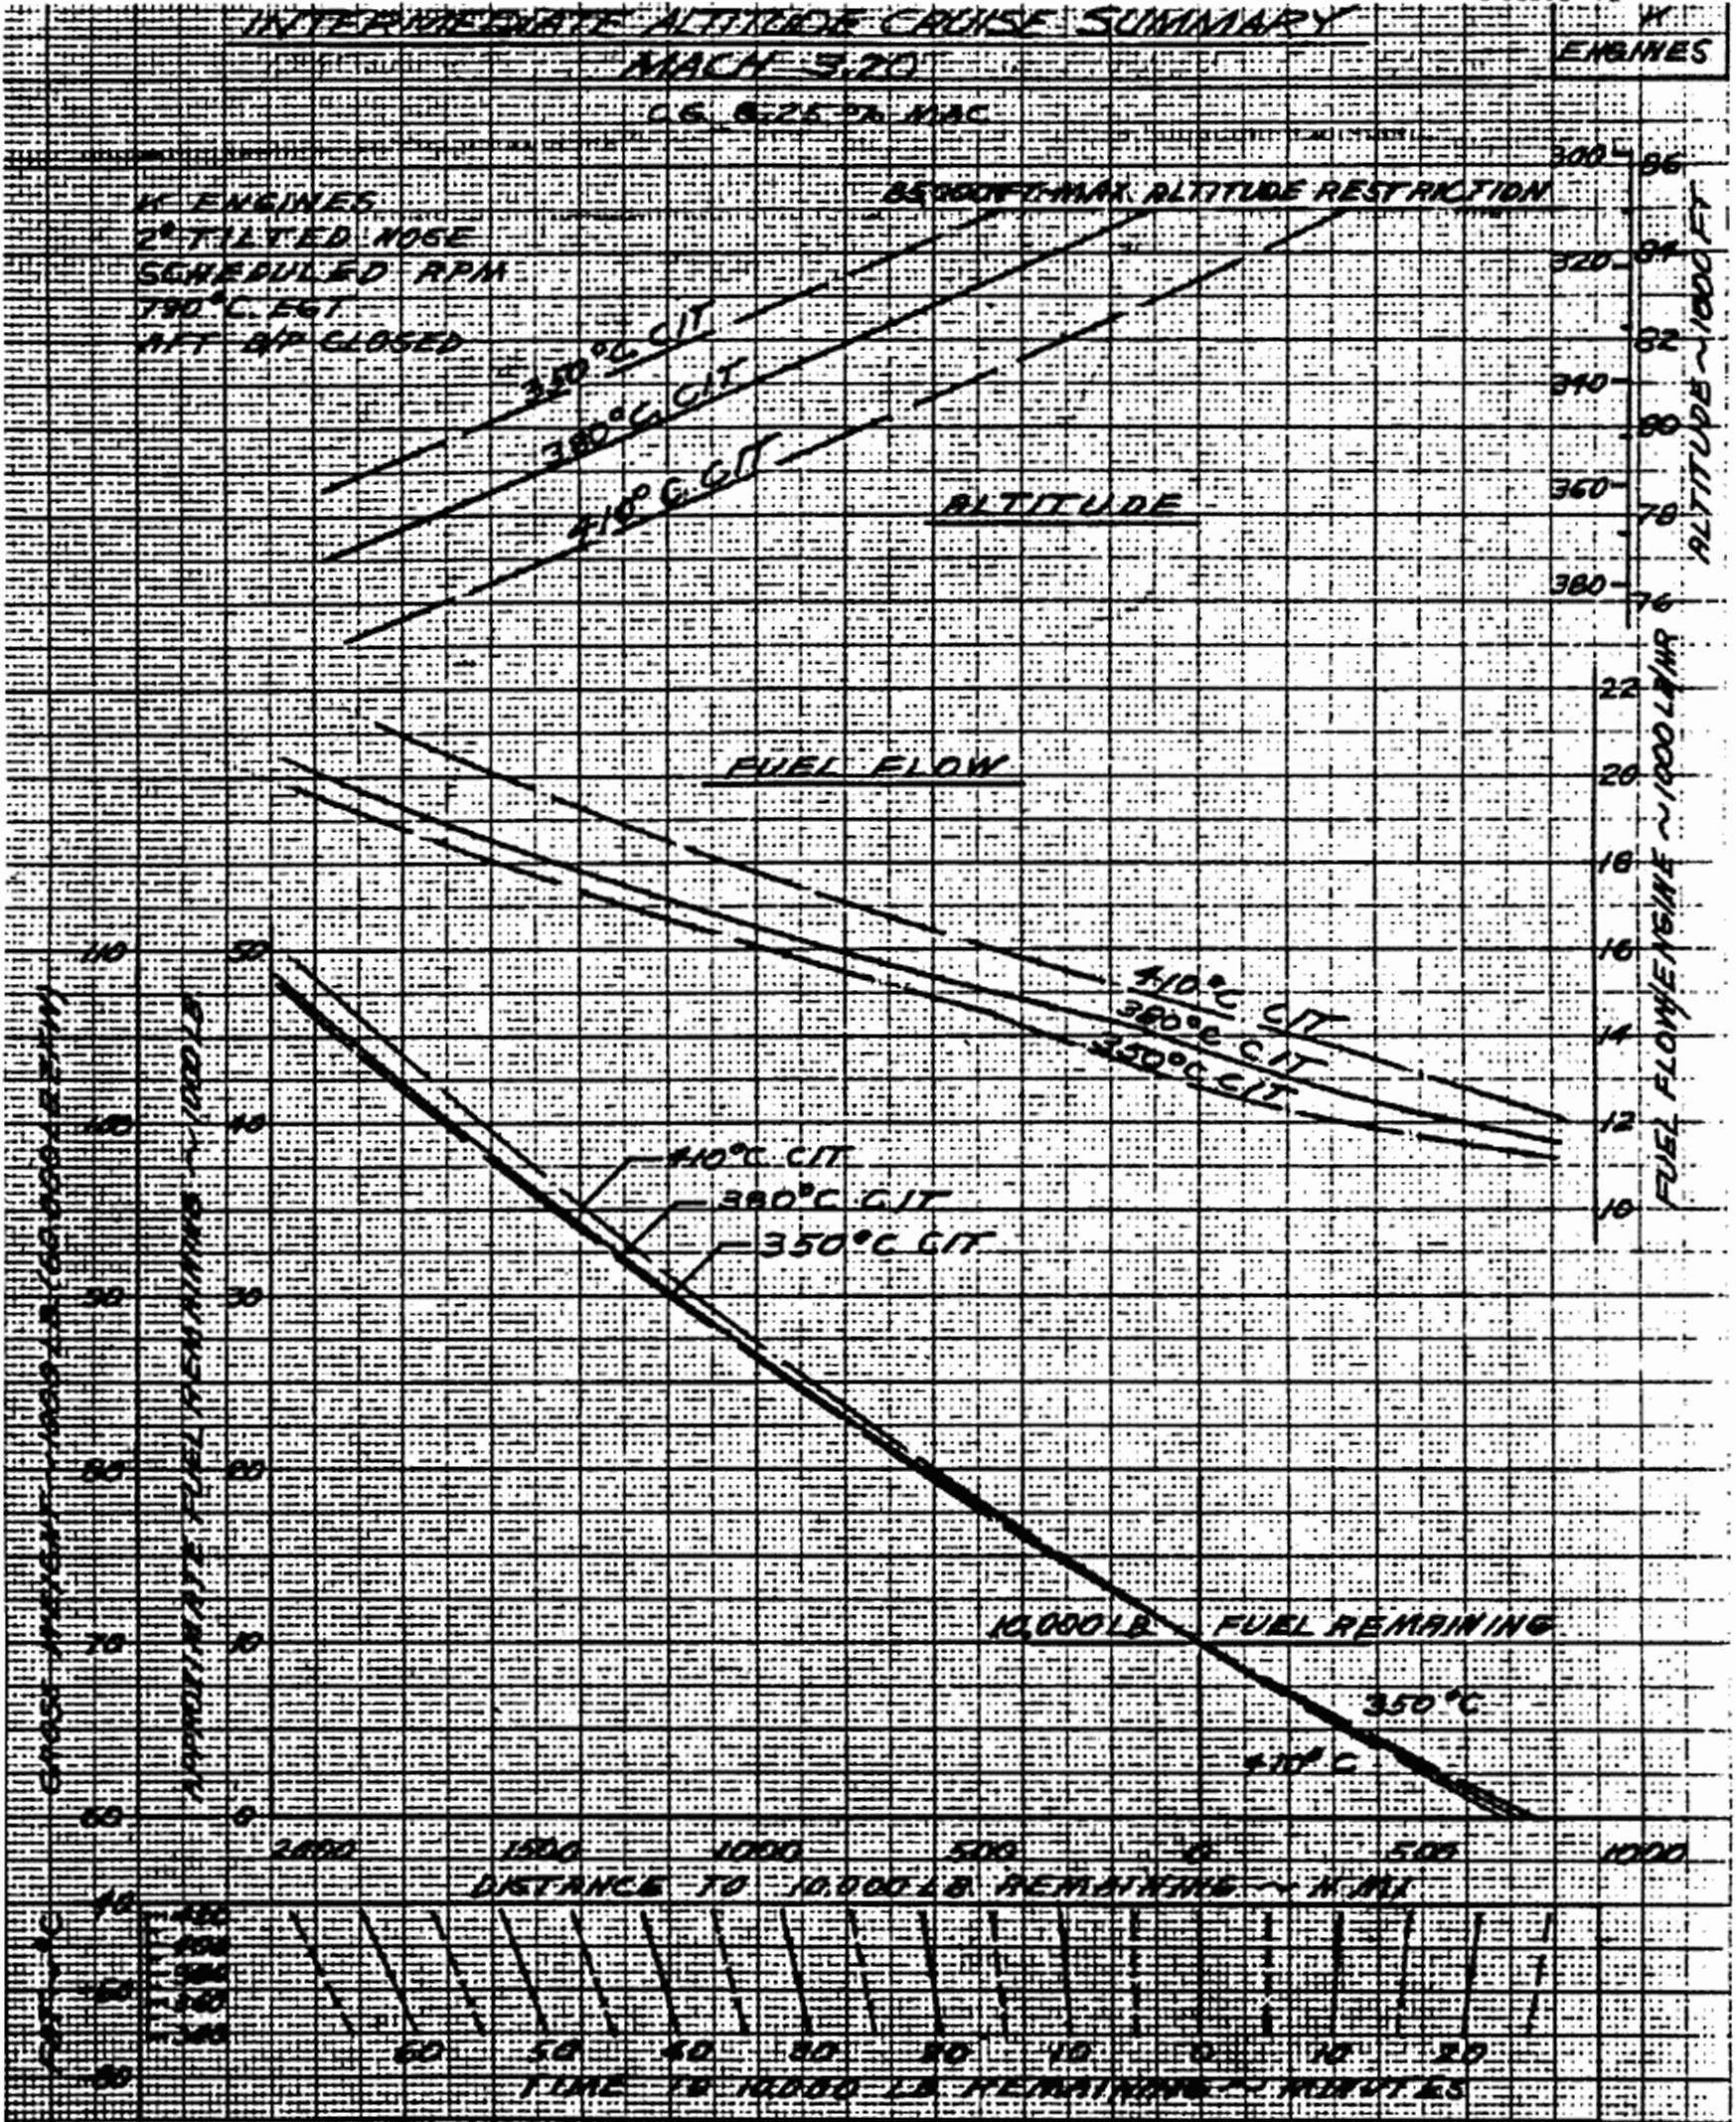 INTERMEDIATE ALTITUDE CRUISE SUMMARY
MACH 3.20
C.G. @ 25% MAC
ENGINES
K ENGINES
2° TILTED NOSE
SCHEDULED RPM
790°C. EGT
AFT B/P CLOSED
85,000 FT. MAX. ALTITUDE RESTRICTION
350°C CIT
380°C. CIT
410°C CIT
ALTITUDE
300
320
340
360
380
86
84
82
80
78
76
ALTITUDE ~ 1000 FT
FUEL FLOW
22
20
18
16
14
12
10
FUEL FLOW/ENGINE ~ 1000 LB/HR
410°C CIT
380°C CIT
350°C CIT
110
100
90
80
70
60
GROSS WEIGHT ~ 1000 LB (60,000 LB ZFW)
50
40
30
20
10
0
APPROXIMATE FUEL REMAINING ~ 1000 LB
410°C CIT
380°C CIT
350°C CIT
10,000 LB FUEL REMAINING
350°C
410°C
2000 1500 1000 500 0 500 1000
DISTANCE TO 10,000 LB REMAINING ~ N.MI
60 50 40 30 20 10 0 10 20
TIME TO 10,000 LB REMAINING ~ MINUTES